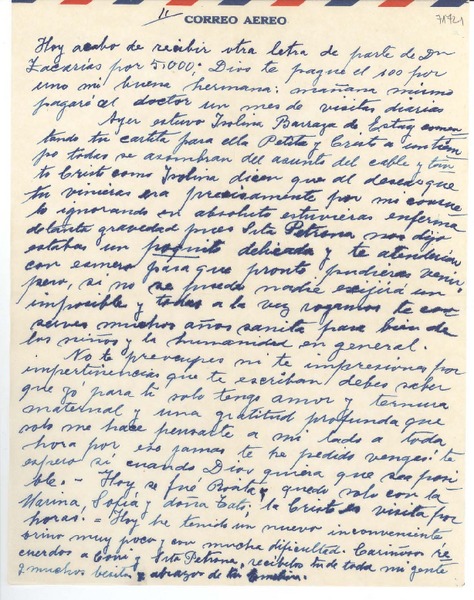 11
CORREO AEREO
71721
Hoy acabo de recibir otra letra de parte de Dn
Zacarías por 5.000; Dios te pague el 100 por
uno mi buena hermana: mañana mismo
pagaré al doctor un mes de visitas diarias
Ayer estuvo Isolina Barraza de Estay comen
tando tu cartita para ella Petita y Cristo a un tiem
po todas se asombran del asunto del cable y tan
to Cristo como Isolina dicen que al desear que
tu vinieras era precisamente por mi consue
lo ignorando en absoluto estuvieras enferma
de tanta gravedad pues Srta Petrona nos dijo
estabas un poquito delicada y te atenderían
con esmero para que pronto pudieras venir
pero, si no se puede nadie exijirá un
imposible y todas a la vez rogamos te con
serves muchos años sanita para bien de
los niños y la humanidad en general.
No te preocupes ni te impresiones por
impertinencias que te escriban debes saber
que yó para ti solo tengo amor y ternura
maternal y una gratitud profunda que
solo me hace pensarte a mi lado a toda
hora por eso jamas te he pedido vengas: te
espero sí cuando Dios quiera que sea posi
ble. - Hoy se fué Rosita y quedo solo con la
Marina, Sofía y doña Tato, la Cristo es visita por
horas. = Hoy he tenido un nuevo inconveniente
orino muy poco y con mucha dificultad. Cariñosos re
cuerdos a Coni y Srta Petrona, recíbelos tú de toda mi gente
y muchos besitos y abrazos de tu Emelina.